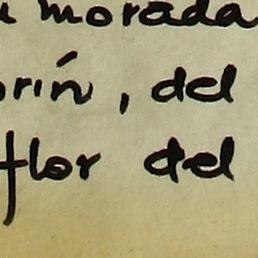 morada
, del
flor del